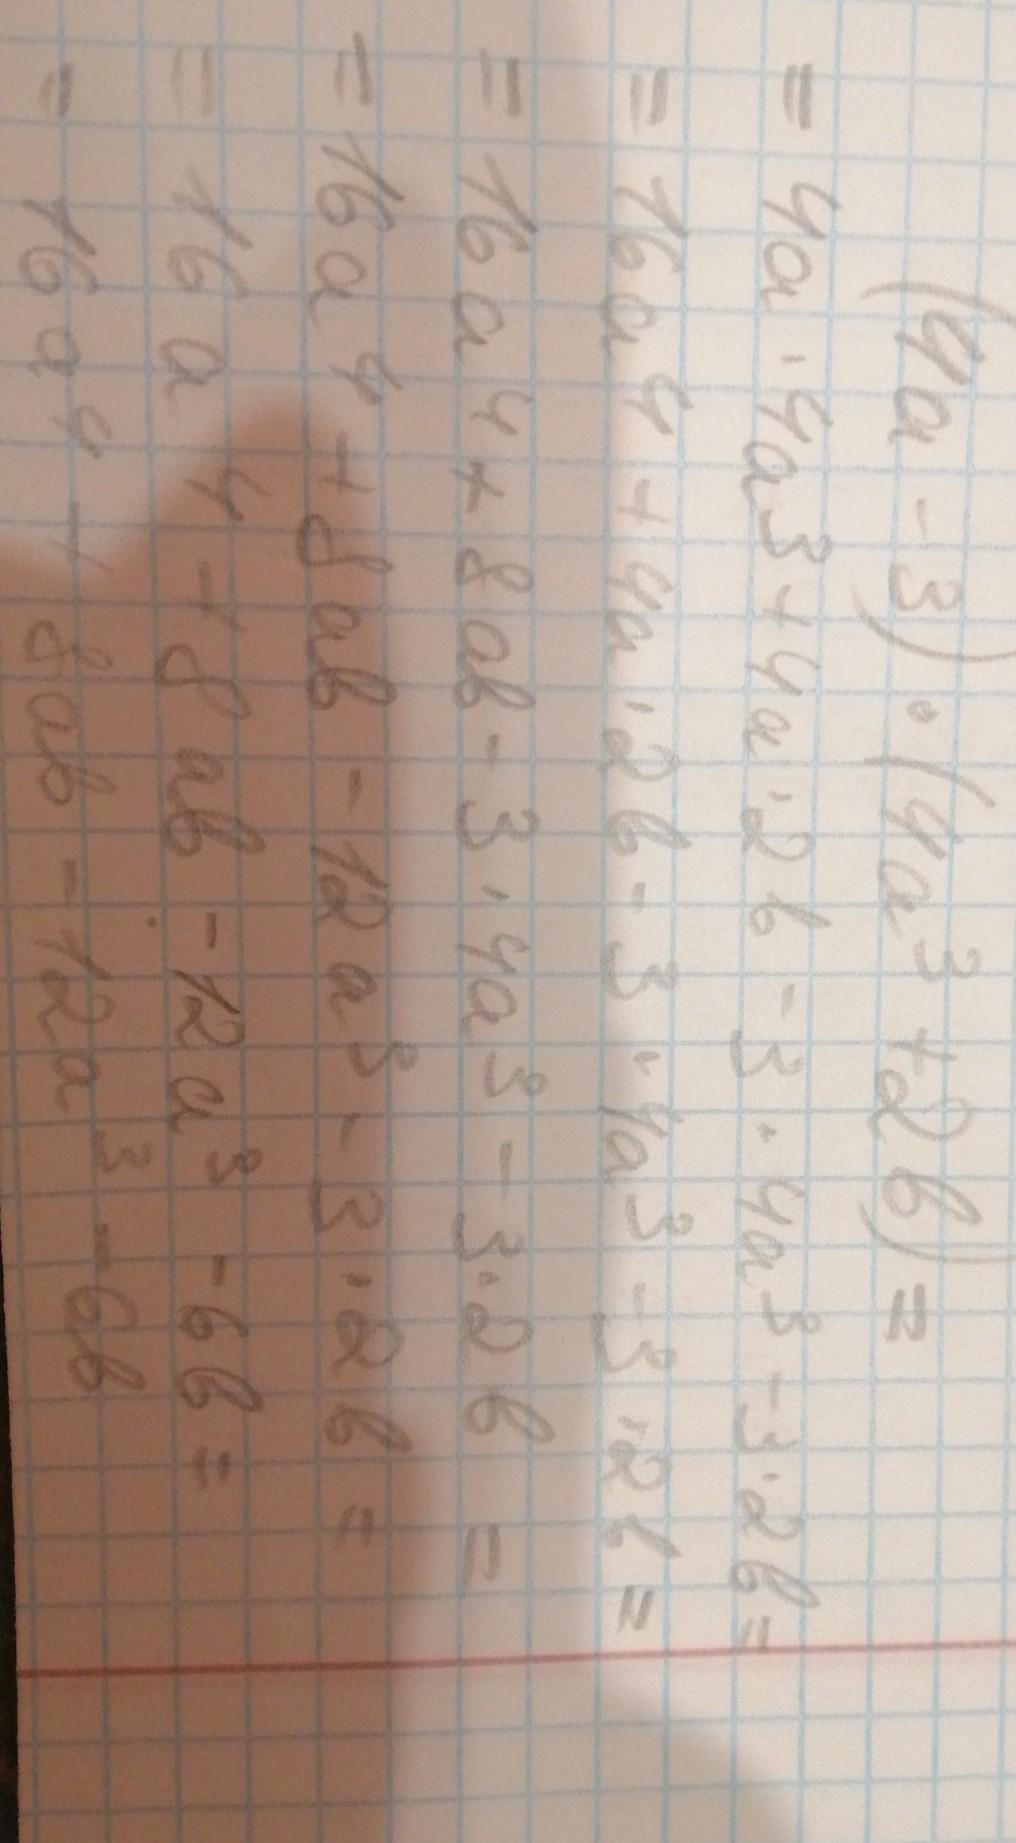 (4a-3)·(4a³+2b)=
=4a·4a3+4a·2b-3·4a3-3·2b=
=16a4+4a·2b-3·4a³-3·2b=
=16a4+8ab-3·4a³-3·2b=
=16a4+8ab-12a³-3·2b=
=16a4+8ab-12a³-6b=
=16a4+8ab-12a³-6b